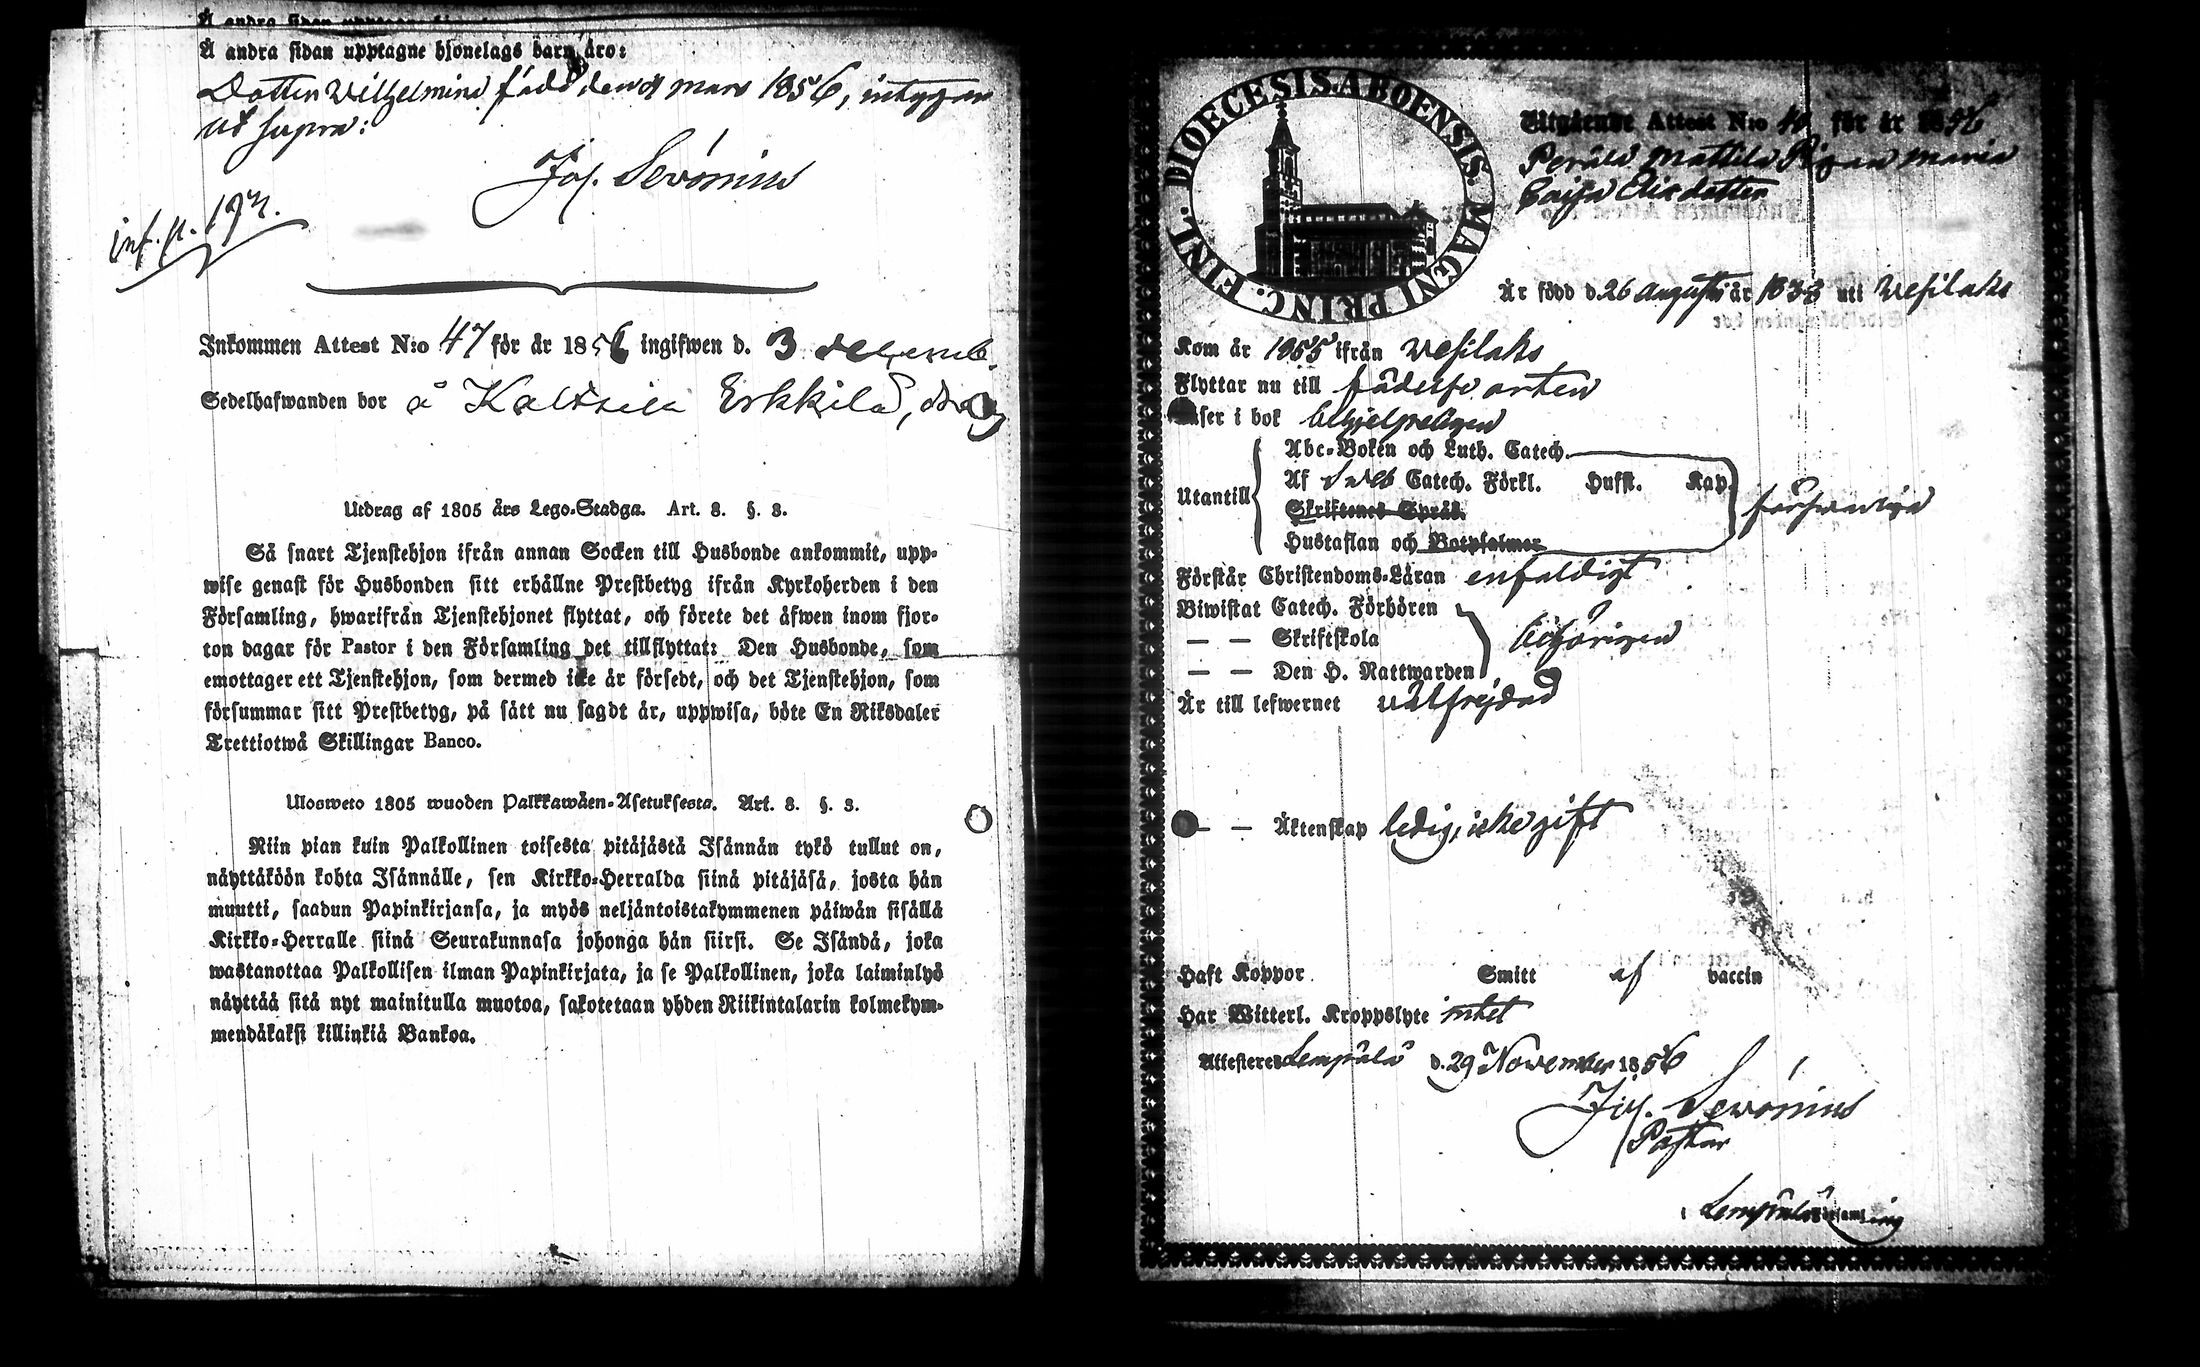 Å andra sidan upptagne hjonelags barn äro:
Dotter Wilhelmina född den mars 1856, intygar
ut supra:
Joh. Sevonius
inf. p. 197.
Inkommen Attest N:o 47 för år 1856 ingifwen d. 3 decemb.
Sedelhafwanden bor å Kaltsila Erkkilä,
Utdrag af 1805 års Lego-Stadga. Art. 8. §. 3.
Så snart Tjenstehjon ifrån annan Socken till Husbonde ankommit, upp-
wise genast för Husbonden sitt erhållne Prestbetyg ifrån Kyrkoherden i den
Församling, hwarifrån Tjenstehjonet flyttat, och förete det äfwen inom fjor-
ton dagar för Pastor i den Församling det tillflyttat: Den Husbonde, som
emottager ett Tjenstehjon, som dermed icke är försedt, och det Tjenstehjon, som
försummar sitt Prestbetyg, på sätt nu sagdt är, uppwisa, böte En Riksdaler
Trettiotwå Skillingar Banco.
Ulosweto 1805 wuoden Palkkawäen-Asetuksesta. Art. 8. §. 3.
Niin pian kuin Palkollinen toisesta pitäjästä Isännän tykö tullut on,
näyttäköön kohta Isännälle, sen Kirkko-Herralda siinä pitäjäsä, josta hän
muutti, saadun Papinkirjansa, ja myös neljäntoistakymmenen päiwän sisällä
Kirkko-Herralle siinä Seurakunnasa johonga hän siirsi. Se Isändä, joka
wastanottaa Palkollisen ilman Papinkirjata, ja se Palkollinen, joka laiminlyö
näyttää sitä nyt mainitulla muotoa, sakotetaan yhden Riikintalarin kolmekym-
mendäkaksi killinkiä Bankoa.
DIOECESIS ABOENSIS. MAGNI PRINC. FINL.
Utgående Attest N:o 40 för år 1856
Perälä Mattila Pigan Maria
Cajsa Elisdotter
Är född d. 26 Augusti år 1833 uti Wesilaks
Kom år 1855 ifrån Wesilaks
Flyttar nu till födelse orten
Läser i bok behjelpeligen
Utantill
Abc-Boken och Luth. Catech.
Af Catech. Förkl. Hufst. Kap.
Skriftenes Språk.
Hustaflan och Botpsalmer
försvarliga
Förstår Christendoms-Läran enfaldigt
Biwistat Catech. Förhören
— — Skriftskola
— — Den H. Nattwarden
behörigen
Är till lefwernet wälfrejdad
— — Äktenskap ledig, icke gift
Haft Koppor Smitt af vaccin
Har Witterl. Kroppslyte intet
Attesteres Lempälä d. 29 November 1856
Joh. Sevonius
Pastor
i Lempälä Församling